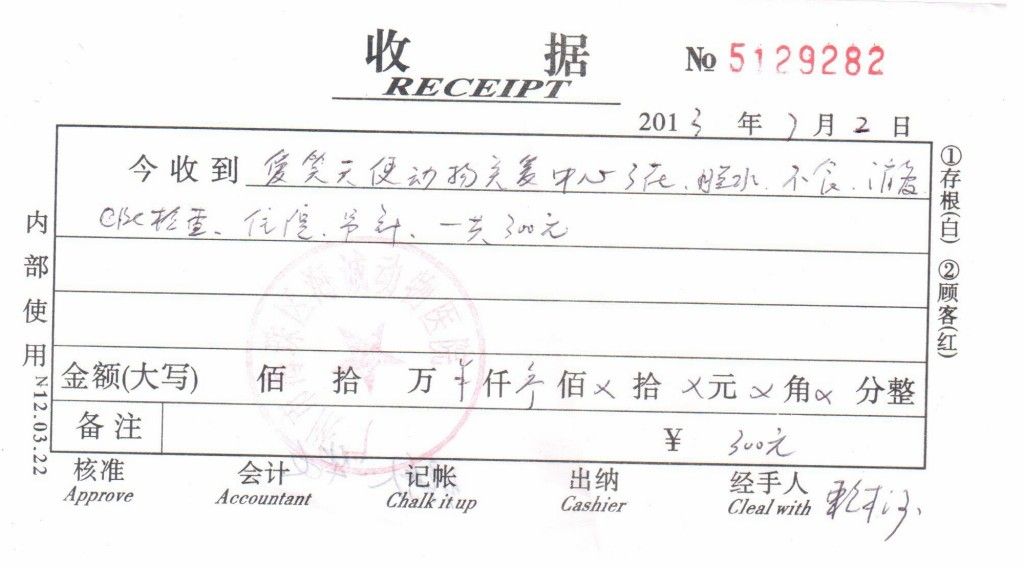 收 据
RECEIPT
№ 5129282
2013 年 7 月 2 日
今收到 爱笑天使动物关爱中心 不食
CBC检查、住院、吊针、一共300元
内部使用
N12.03.22
①存根(白) ②顾客(红)
动物医院
金额(大写) 佰 拾 万 半 仟 叁 佰 × 拾 × 元 × 角 × 分整
备注 ¥ 300元
核准 会计 记帐 出纳 经手人
Approve Accountant Chalk it up Cashier Cleal with